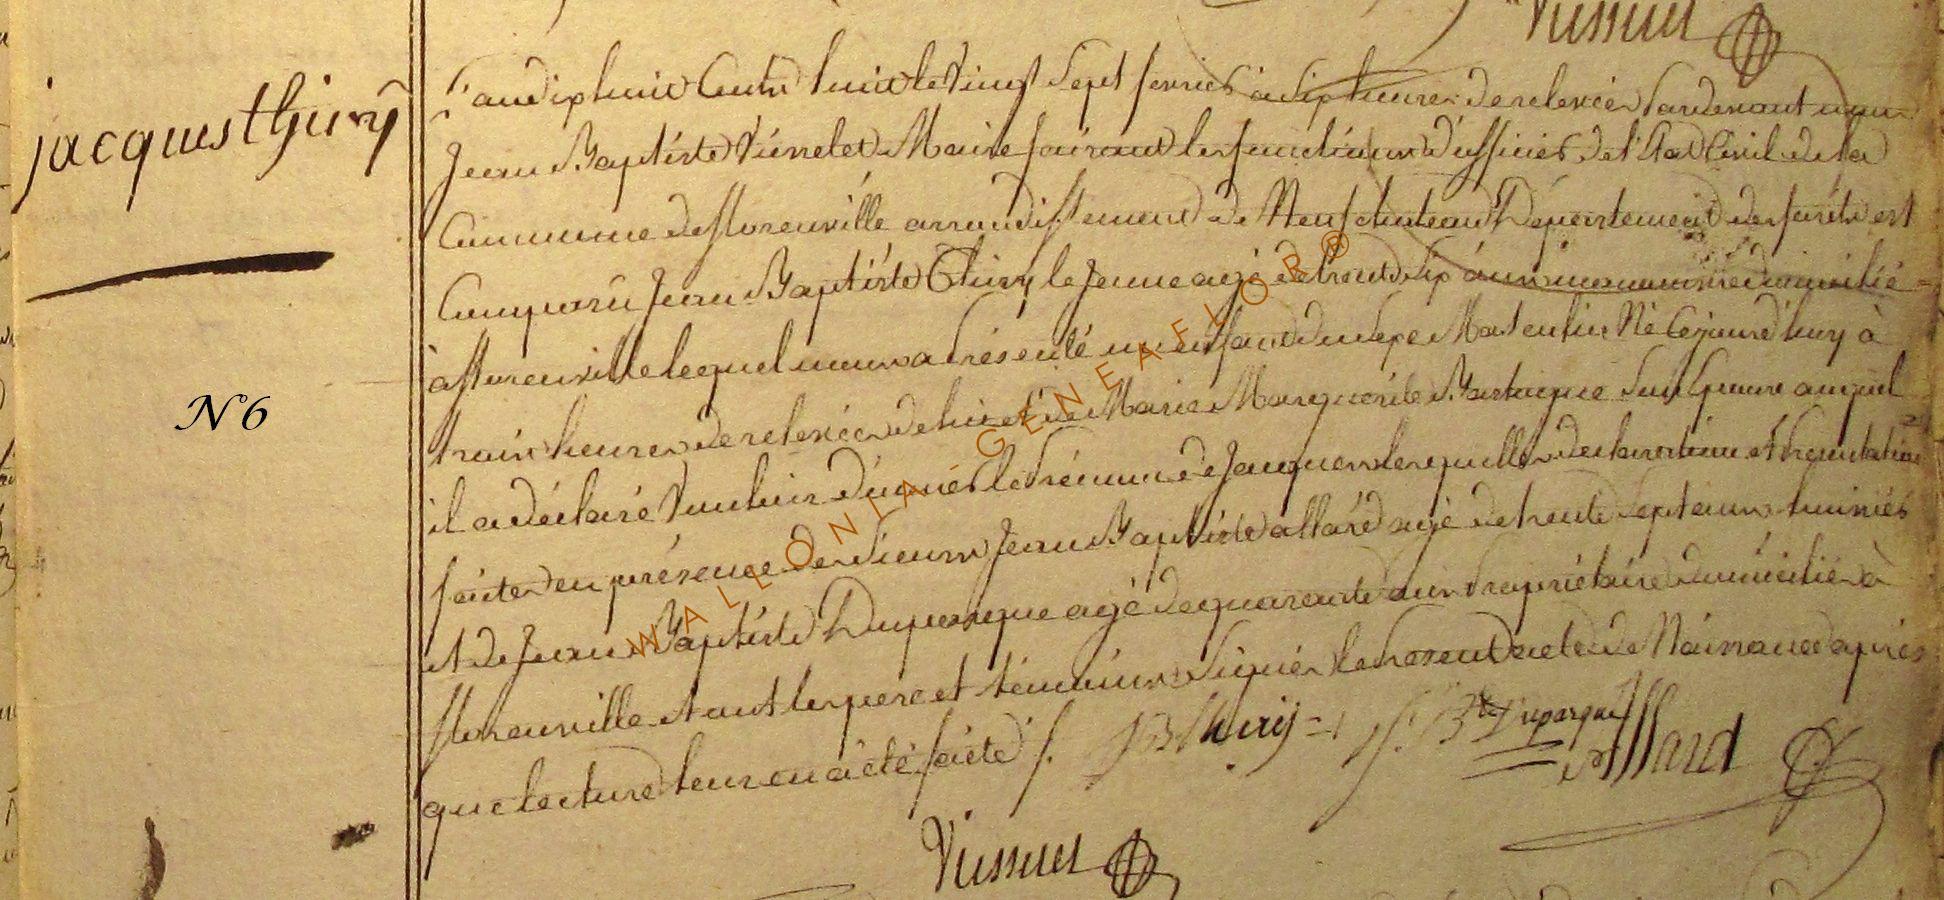 Vissuet
jacques thiry
N°6
L'an dix huit Cents huit le Vingt Sept fevrier à Six heures de relevée Pardevant nous
Jean Baptiste Maire faisant les fonctions d'officier de l'Etat Civil de la
Commune de florenville arrondissement de Neufchateau Département des forêts est
Comparu Jean Baptiste Thiry le Jeune agé de trente Six ans domicilié
à florenville lequel nous a Présenté un enfant du Sexe Masculin Né Cejourd'huy à
trois heures de relevée de lui et de Marie Marguerite Son Epouse auquel
il a déclaré Vouloir donner le Prénom de Jacques lesquelles declaration et Presentation
faites en présence de Sieurs Jean Baptiste allard agé de trente Sept ans huissier
et de Jean Baptiste Duparque agé de quarante ans Propriétaire domicilié à
florenville et ont les pere et témoins Signés le Present acte de Naissance après
que lecture leur en a été faite /.
JB thiry
J. Bte Duparque
Allard
Vissuet
WALLONIA GENEAFLOR®